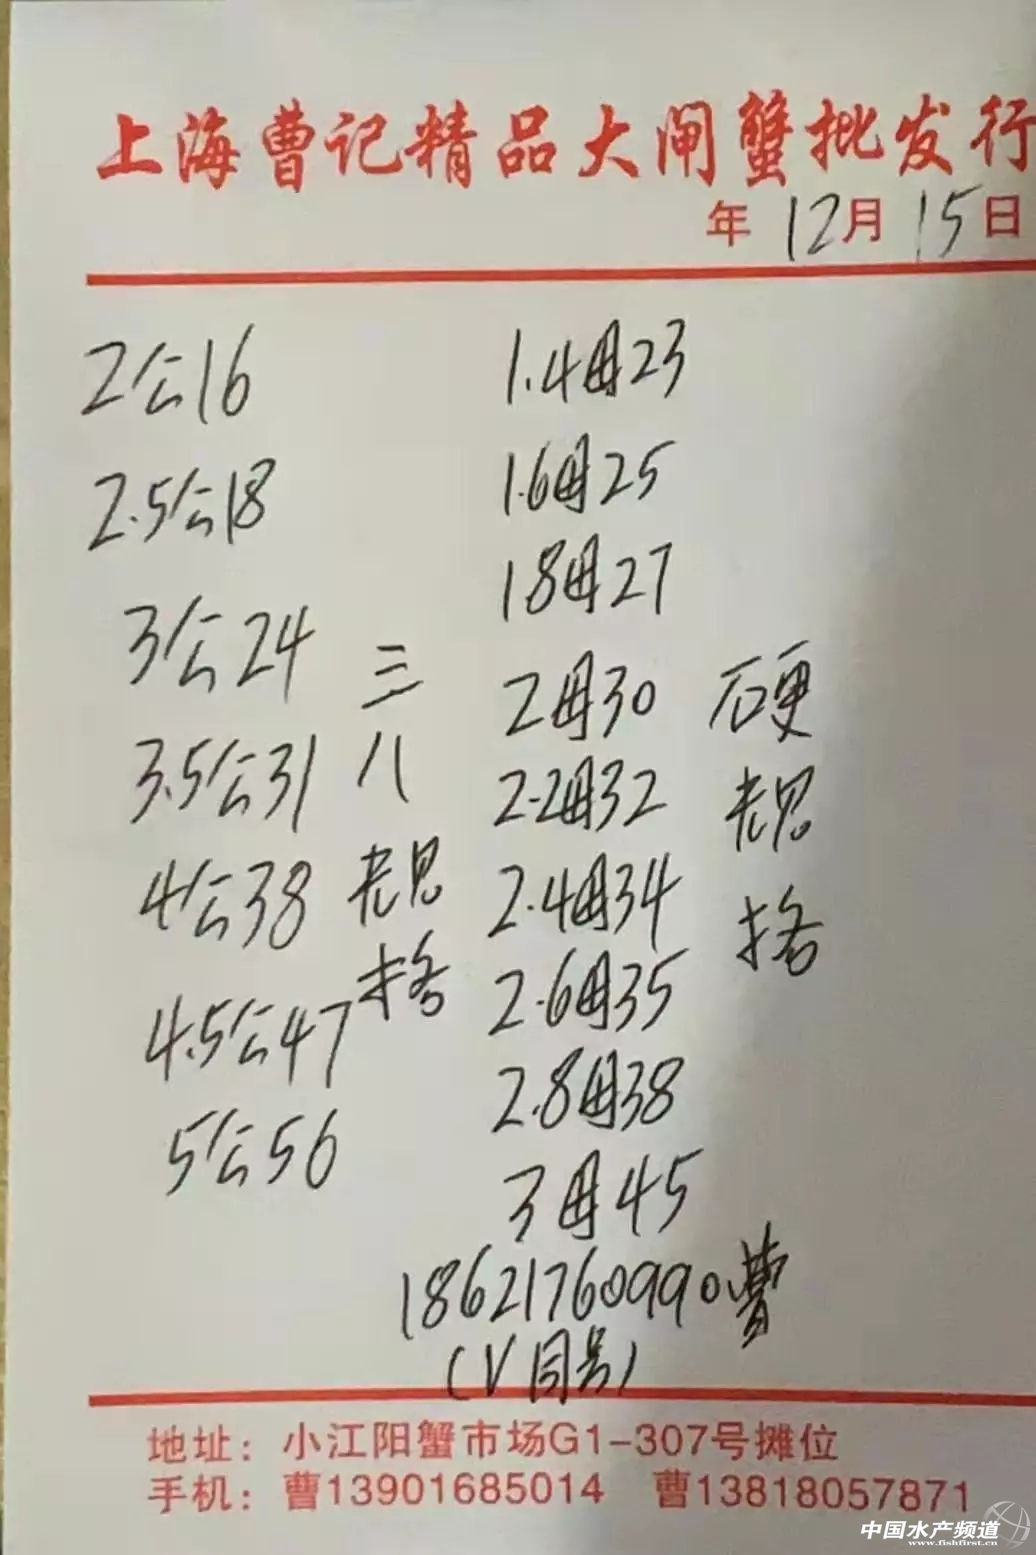 上海曹记精品大闸蟹批发行
年 12月 15日
2公16
2.5公18
3公24
3.5公31
4公38
4.5公47
5公56
三
八
规
格
1.4母23
1.6母25
1.8母27
2母30
2.2母32
2.4母34
2.6母35
2.8母38
3母45
硬
规
格
18621760990
(V同号)
地址：小江阳蟹市场G1-307号摊位
手机：曹13901685014 曹13818057871
中国水产频道
www.fishfirst.cn